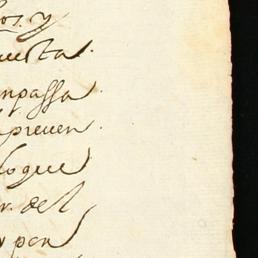 os. y
uesta.
mpassa
preuen.
logue
r. del
r por